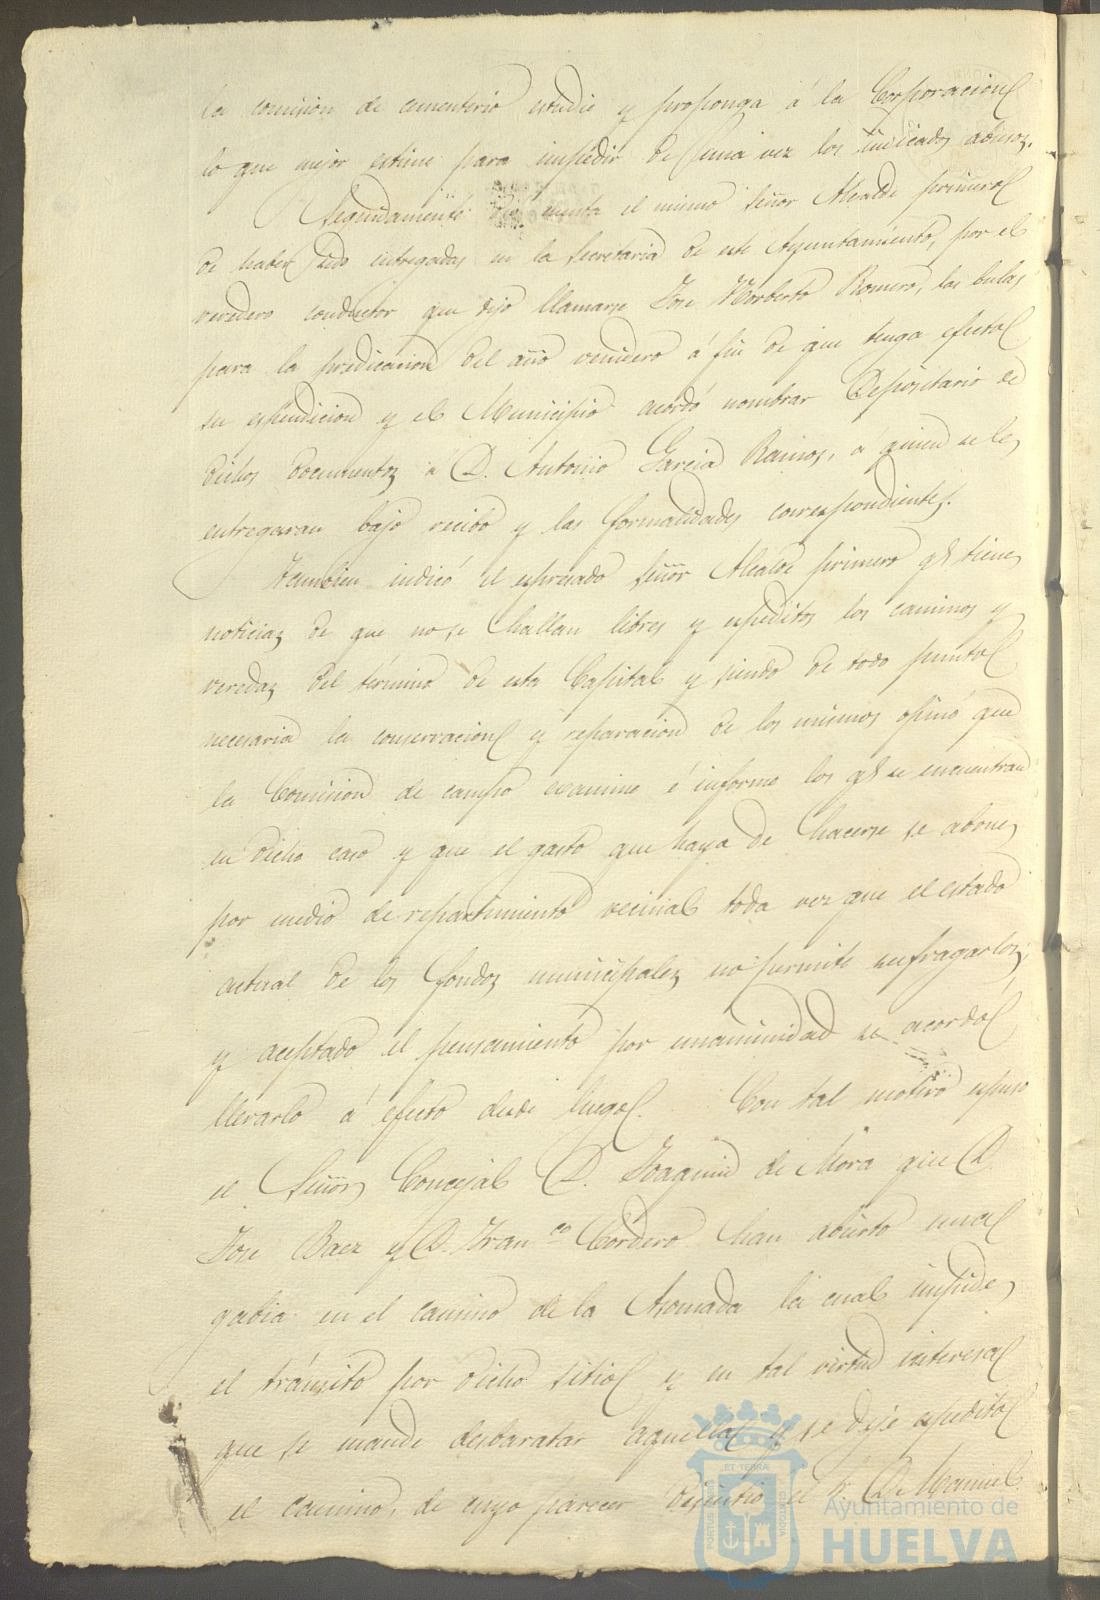 la comision de cementerio estudie y proponga á la Corporacion
lo que mejor estime para impedir de una vez los indicados abusos.
Seguidamente dió cuenta el mismo Señor Alcalde primero
de haber sido entregadas en la Secretaria de este Ayuntamiento, por el
veredero conductor que dijo llamarse Jose Norberto Romero, las bulas
para la predicacion del año venidero á fin de que tenga efecto
su espendicion y el Municipio acordó nombrar Depositario de
dichos documentos á D. Antonio Garcia Ramos, á quien se le
entregaran bajo recibo y las formalidades correspondientes.
Tambien indicó el espresado Señor Alcalde primero qe tiene
noticias de que no se hallan libres y espeditos los caminos y
veredas del término de esta Capital y siendo de todo punto
necesaria la conservacion y reparacion de los mismos opinó que
la Comision de campo examine é informe los qe se encuentran
en dicho caso y que el gasto que haya de hacerse se abone
por medio de repartimiento vecinal toda vez que el estado
actual de los fondos municipales no permite sufragarlos;
y aceptado el pensamiento por unanimidad se acordó
llevarlo á efecto desde luego. Con tal motivo espuso
el Señor Concejal D. Joaquin de Mora que D.
Jose Baez y D. Franco Cordero han abierto una
gabia en el camino de la Asomada la cual impide
el tránsito por dicho sitio y en tal virtud interesa
que se mande desbaratar aquella y se deje espedito
el camino, de cuyo parecer disintió el Sr. D. Manuel
PORTUS MARIS
ET TERRÆ
CUSTODIA
Ayuntamiento de
HUELVA